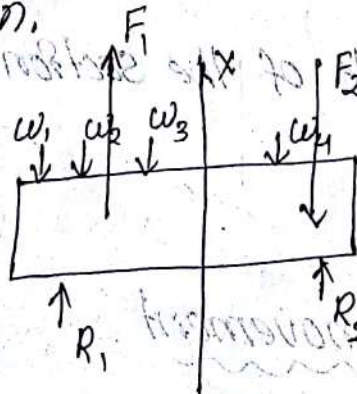 n.
F₁
x F₂
ω₁ ω₂ ω₃ ω₄
R₁ R₂